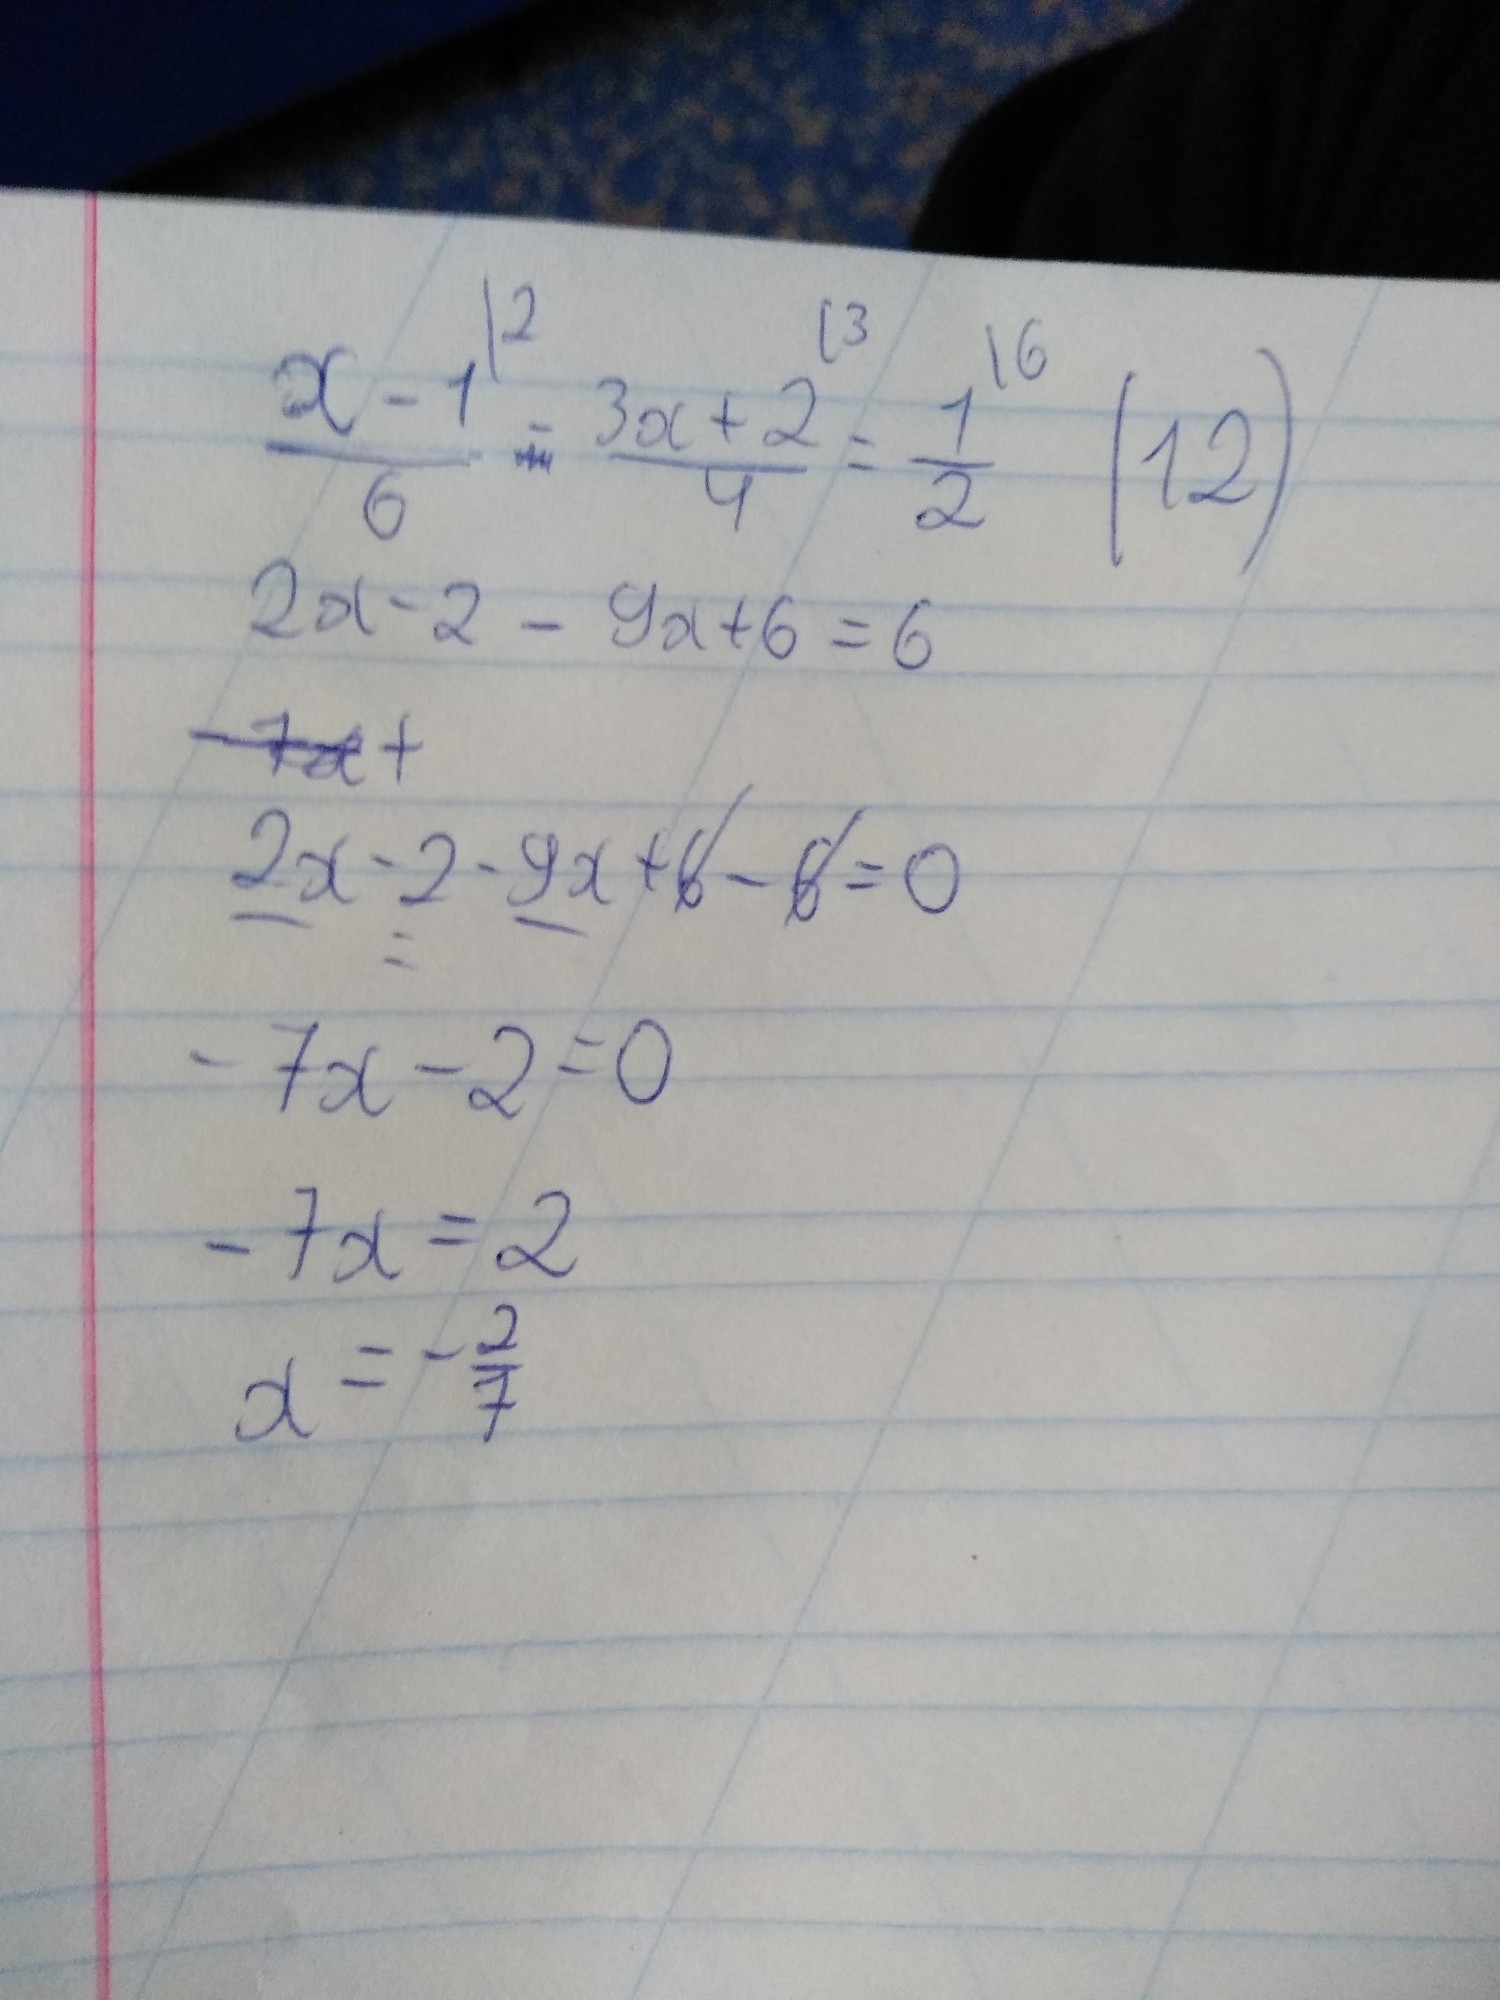 x - 1 |2 / 6 - 3x + 2 |3 / 4 = 1 |6 / 2 (12)
2x - 2 - 9x + 6 = 6
- 7x +
2x - 2 - 9x + 6 - 6 = 0
- 7x - 2 = 0
- 7x = 2
x = - 2/7